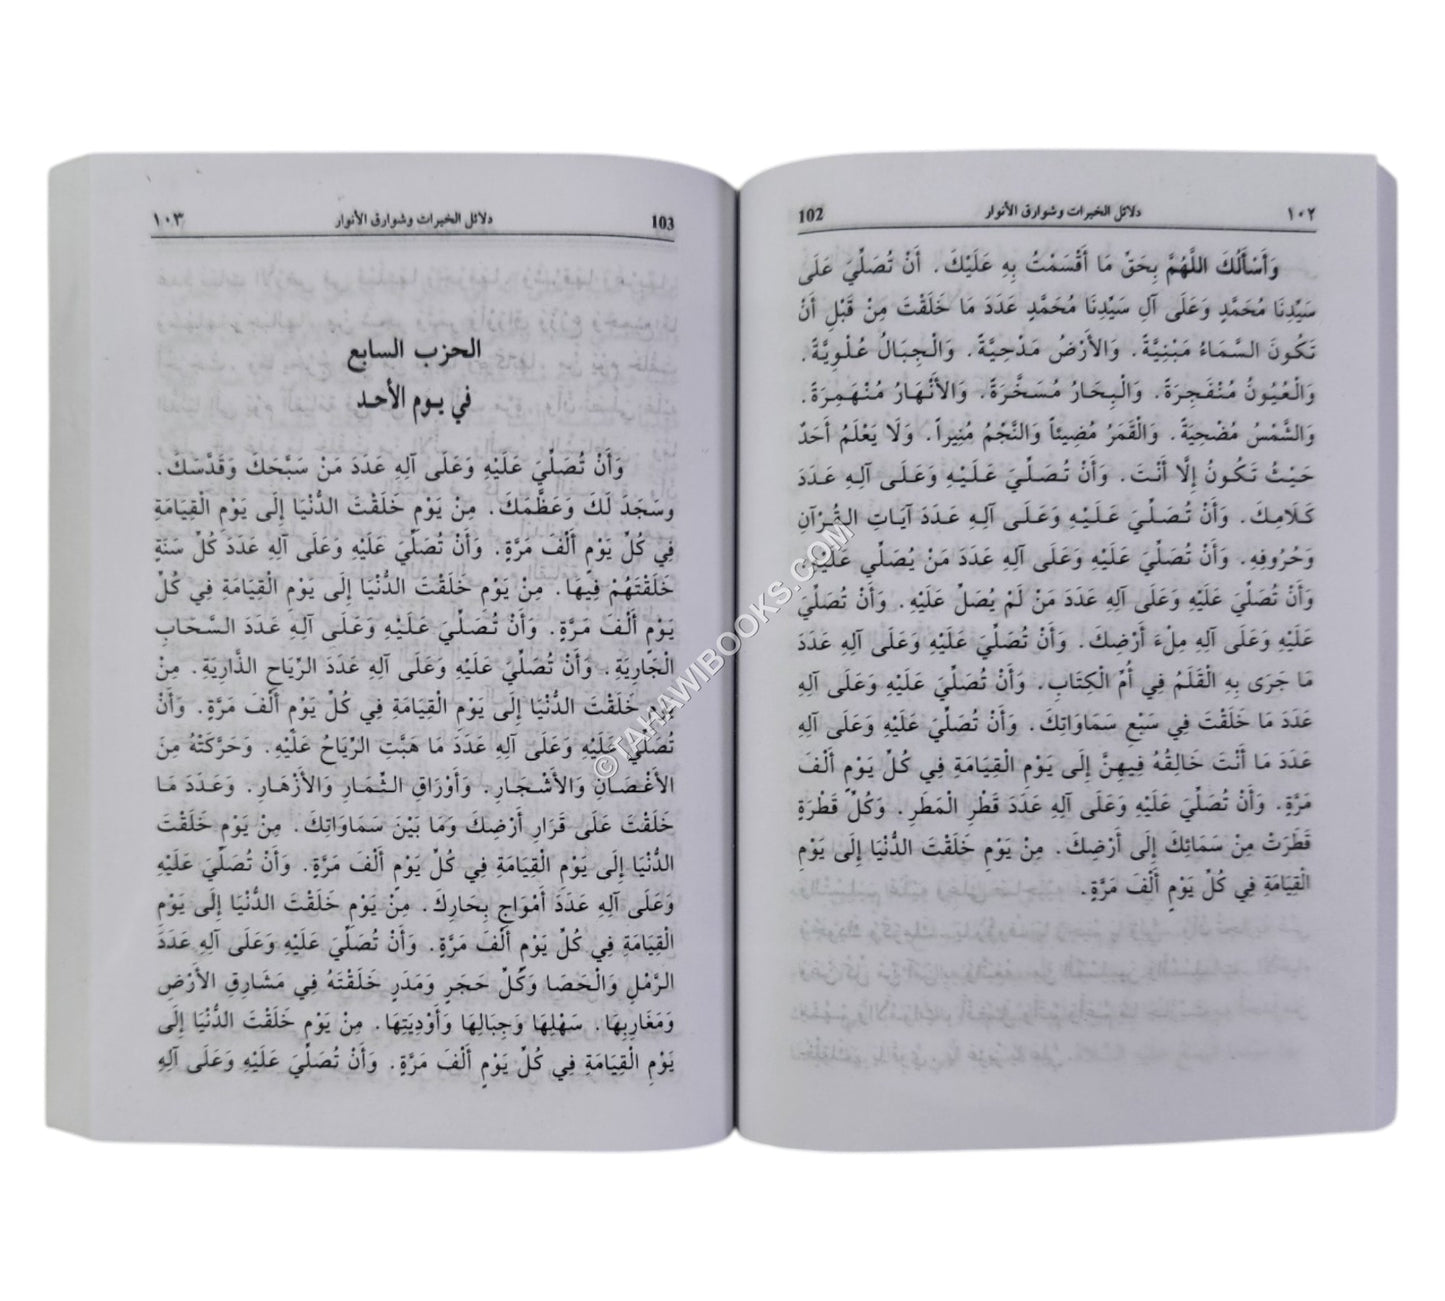 ١٠٢ دلائل الخيرات وشوارق الأنوار 102
وَأَسْأَلُكَ اللَّهُمَّ بِحَقِّ مَا أَقْسَمْتُ بِهِ عَلَيْكَ. أَنْ تُصَلِّيَ عَلَى
سَيِّدِنَا مُحَمَّدٍ وَعَلَى آلِ سَيِّدِنَا مُحَمَّدٍ عَدَدَ مَا خَلَقْتَ مِنْ قَبْلِ أَنْ
تَكُونَ السَّمَاءُ مَبْنِيَّةً. وَالأَرْضُ مَدْحِيَّةً. وَالْجِبَالُ عُلْوِيَّةً.
وَالْعُيُونُ مُنْفَجِرَةً. وَالْبِحَارُ مُسَخَّرَةً. وَالأَنْهَارُ مُنْهَمِرَةً.
وَالشَّمْسُ مُضْحِيَةً. وَالْقَمَرُ مُضِيئاً وَالنَّجْمُ مُنِيراً. وَلَا يَعْلَمُ أَحَدٌ
حَيْثُ تَكُونُ إِلَّا أَنْتَ. وَأَنْ تُصَلِّيَ عَلَيْهِ وَعَلَى آلِهِ عَدَدَ
كَلَامِكَ. وَأَنْ تُصَلِّيَ عَلَيْهِ وَعَلَى آلِهِ عَدَدَ آيَاتِ الْقُرْآنِ
وَحُرُوفِهِ. وَأَنْ تُصَلِّيَ عَلَيْهِ وَعَلَى آلِهِ عَدَدَ مَنْ يُصَلِّي عَلَيْهِ.
وَأَنْ تُصَلِّيَ عَلَيْهِ وَعَلَى آلِهِ عَدَدَ مَنْ لَمْ يُصَلِّ عَلَيْهِ. وَأَنْ تُصَلِّيَ
عَلَيْهِ وَعَلَى آلِهِ مِلْءَ أَرْضِكَ. وَأَنْ تُصَلِّيَ عَلَيْهِ وَعَلَى آلِهِ عَدَدَ
مَا جَرَى بِهِ الْقَلَمُ فِي أُمِّ الْكِتَابِ. وَأَنْ تُصَلِّيَ عَلَيْهِ وَعَلَى آلِهِ
عَدَدَ مَا خَلَقْتَ فِي سَبْعِ سَمَاوَاتِكَ. وَأَنْ تُصَلِّيَ عَلَيْهِ وَعَلَى آلِهِ
عَدَدَ مَا أَنْتَ خَالِقُهُ فِيهِنَّ إِلَى يَوْمِ الْقِيَامَةِ فِي كُلِّ يَوْمٍ أَلْفَ
مَرَّةٍ. وَأَنْ تُصَلِّيَ عَلَيْهِ وَعَلَى آلِهِ عَدَدَ قَطْرِ الْمَطَرِ. وَكُلِّ قَطْرَةٍ
قَطَرَتْ مِنْ سَمَائِكَ إِلَى أَرْضِكَ. مِنْ يَوْمِ خَلَقْتَ الدُّنْيَا إِلَى يَوْمِ
الْقِيَامَةِ فِي كُلِّ يَوْمٍ أَلْفَ مَرَّةٍ.
103 دلائل الخيرات وشوارق الأنوار ١٠٣
الحزب السابع
في يوم الأحد
وَأَنْ تُصَلِّيَ عَلَيْهِ وَعَلَى آلِهِ عَدَدَ مَنْ سَبَّحَكَ وَقَدَّسَكَ.
وسَجَدَ لَكَ وَعَظَّمَكَ. مِنْ يَوْمِ خَلَقْتَ الدُّنْيَا إِلَى يَوْمِ الْقِيَامَةِ
فِي كُلِّ يَوْمٍ أَلْفَ مَرَّةٍ. وَأَنْ تُصَلِّيَ عَلَيْهِ وَعَلَى آلِهِ عَدَدَ كُلِّ سَنَةٍ
خَلَقْتَهُمْ فِيهَا. مِنْ يَوْمِ خَلَقْتَ الدُّنْيَا إِلَى يَوْمِ الْقِيَامَةِ فِي كُلِّ
يَوْمٍ أَلْفَ مَرَّةٍ. وَأَنْ تُصَلِّيَ عَلَيْهِ وَعَلَى آلِهِ عَدَدَ السَّحَابِ
الْجَارِيَةِ. وَأَنْ تُصَلِّيَ عَلَيْهِ وَعَلَى آلِهِ عَدَدَ الرِّيَاحِ الذَّارِيَةِ. مِنْ
يَوْمِ خَلَقْتَ الدُّنْيَا إِلَى يَوْمِ الْقِيَامَةِ فِي كُلِّ يَوْمٍ أَلْفَ مَرَّةٍ. وَأَنْ
تُصَلِّيَ عَلَيْهِ وَعَلَى آلِهِ عَدَدَ مَا هَبَّتِ الرِّيَاحُ عَلَيْهِ. وَحَرَّكَتْهُ مِنَ
الأَغْصَانِ وَالأَشْجَارِ. وَأَوْرَاقِ الثِّمَارِ وَالأَزْهَارِ. وَعَدَدَ مَا
خَلَقْتَ عَلَى قَرَارِ أَرْضِكَ وَمَا بَيْنَ سَمَاوَاتِكَ. مِنْ يَوْمِ خَلَقْتَ
الدُّنْيَا إِلَى يَوْمِ الْقِيَامَةِ فِي كُلِّ يَوْمٍ أَلْفَ مَرَّةٍ. وَأَنْ تُصَلِّيَ عَلَيْهِ
وَعَلَى آلِهِ عَدَدَ أَمْوَاجِ بِحَارِكَ. مِنْ يَوْمِ خَلَقْتَ الدُّنْيَا إِلَى يَوْمِ
الْقِيَامَةِ فِي كُلِّ يَوْمٍ أَلْفَ مَرَّةٍ. وَأَنْ تُصَلِّيَ عَلَيْهِ وَعَلَى آلِهِ عَدَدَ
الرَّمْلِ وَالْحَصَا وَكُلِّ حَجَرٍ وَمَدَرٍ خَلَقْتَهُ فِي مَشَارِقِ الأَرْضِ
وَمَغَارِبِهَا. سَهْلِهَا وَجِبَالِهَا وَأَوْدِيَتِهَا. مِنْ يَوْمِ خَلَقْتَ الدُّنْيَا إِلَى
يَوْمِ الْقِيَامَةِ فِي كُلِّ يَوْمٍ أَلْفَ مَرَّةٍ. وَأَنْ تُصَلِّيَ عَلَيْهِ وَعَلَى آلِهِ
©TAHAWIBOOKS.COM